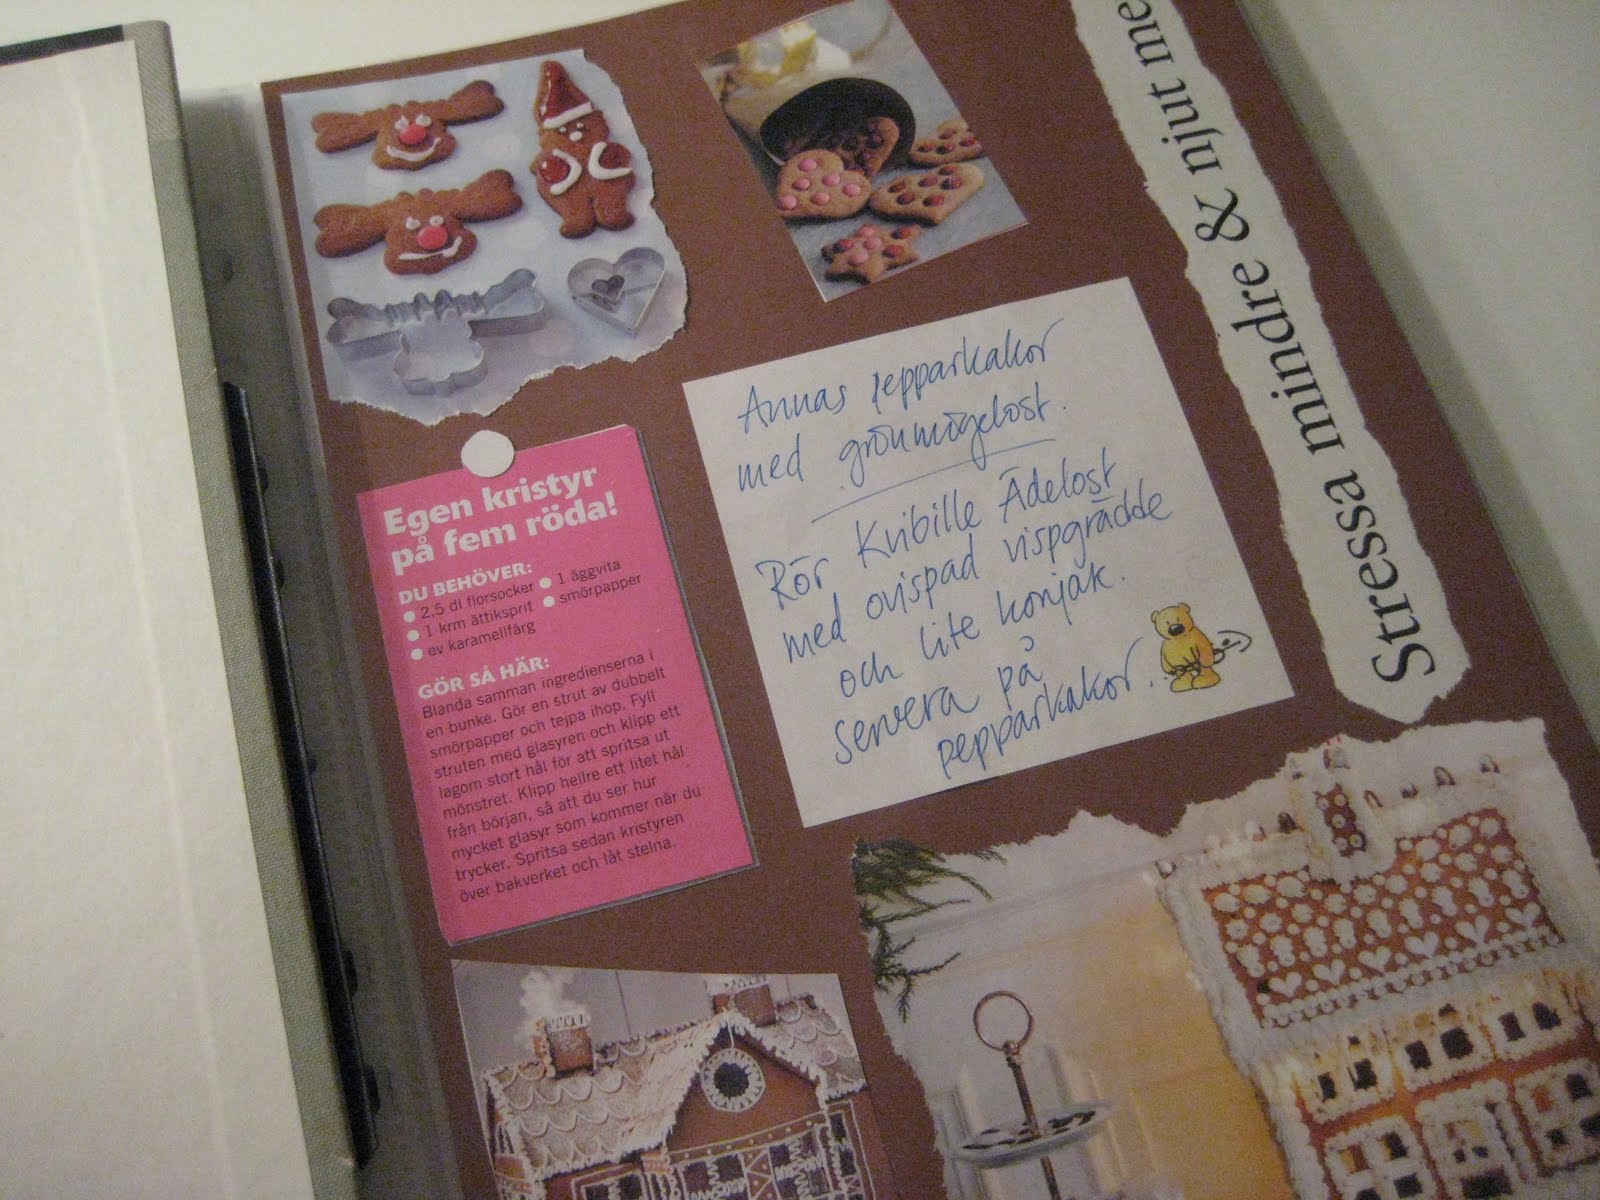 Egen kristyr
på fem röda!
DU BEHÖVER:
2,5 dl florsocker
1 krm ättiksprit
ev karamellfärg
1 äggvita
smörpapper
GÖR SÅ HÄR:
Blanda samman ingredienserna i
en bunke. Gör en strut av dubbelt
smörpapper och tejpa ihop. Fyll
struten med glasyren och klipp ett
lagom stort hål för att spritsa ut
mönstret. Klipp hellre ett litet hål
från början, så att du ser hur
mycket glasyr som kommer när du
trycker. Spritsa sedan kristyren
över bakverket och låt stelna.
Annas pepparkakor
med grönmögelost.
Rör Kvibille Ädelost
med ovispad vispgrädde
och lite konjak.
servera på
pepparkakor.
Stressa mindre & njut me